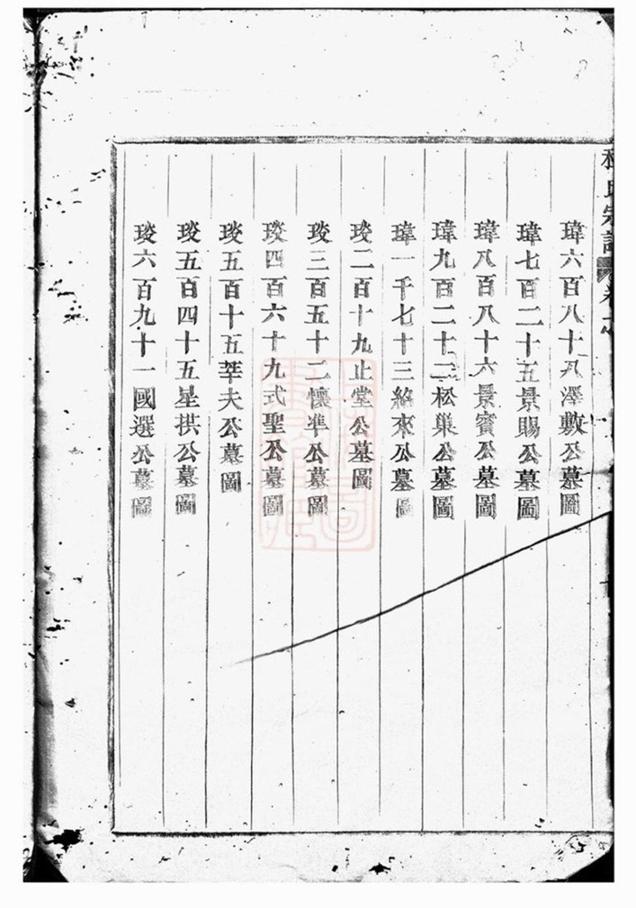 氏宗譜 卷
瑋六百八十八澤敷公墓圖
瑋七百二十五景賜公墓圖
瑋八百八十六景賓公墓圖
瑋九百二十二松巢公墓圖
瑋一千七十三紹來公墓圖
琰二百十九止堂公墓圖
琰三百五十二懷準公墓圖
琰四百六十九式聖公墓圖
琰五百十五莘夫公墓圖
琰五百四十五星拱公墓圖
琰六百九十一國選公墓圖